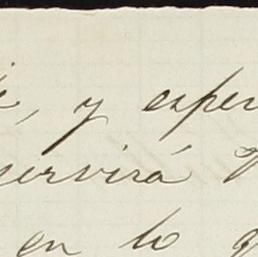 , y esper
servirá
en lo q